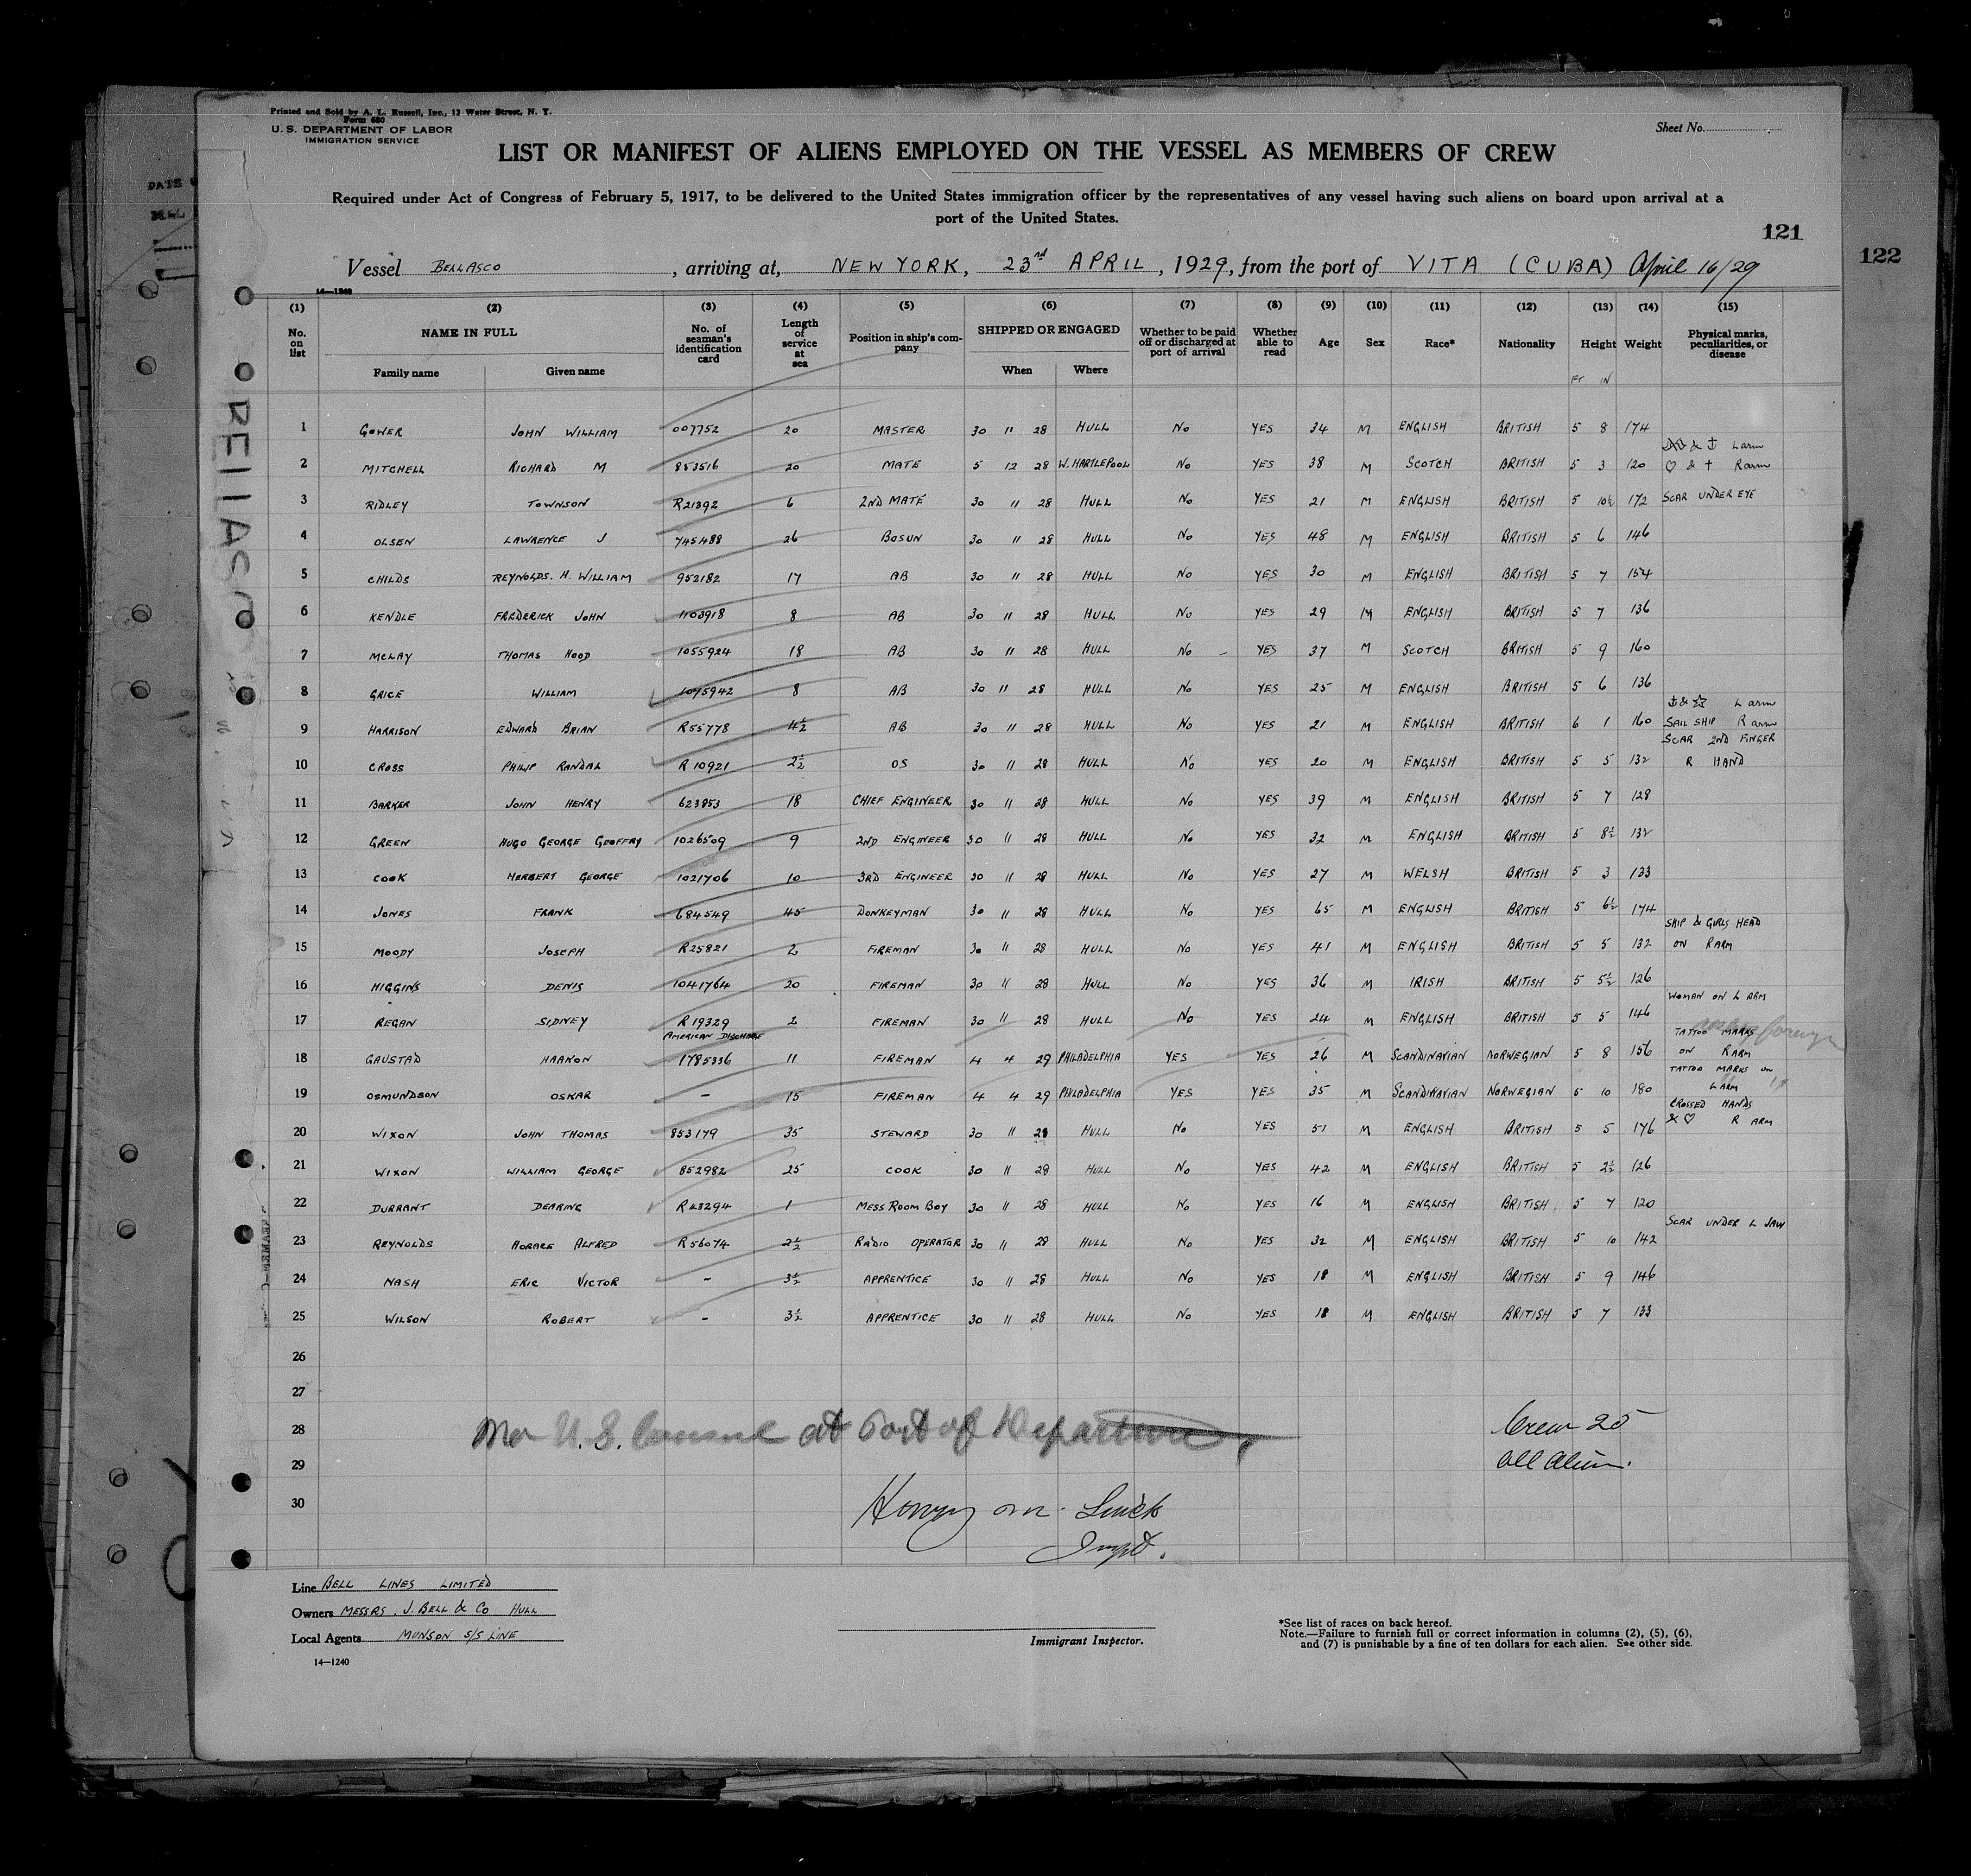 Printed and Sold by A. L. Russell, Inc., 13 Water Street, N. Y.
Form 680
U. S. DEPARTMENT OF LABOR
IMMIGRATION SERVICE
Sheet No.
LIST OR MANIFEST OF ALIENS EMPLOYED ON THE VESSEL AS MEMBERS OF CREW
Required under Act of Congress of February 5, 1917, to be delivered to the United States immigration officer by the representatives of any vessel having such aliens on board upon arrival at a
port of the United States.
121
122
Vessel BELLASCO, arriving at, NEW YORK, 23rd APRIL, 1929, from the port of VITA (CUBA) April 16/29
14—1240
(1) (2) (3) (4) (5) (6) (7) (8) (9) (10) (11) (12) (13) (14) (15)
No. on list NAME IN FULL Family name Given name No. of seaman's identification card Length of service at sea Position in ship's company SHIPPED OR ENGAGED When Where Whether to be paid off or discharged at port of arrival Whether able to read Age Sex Race* Nationality Height Weight Physical marks, peculiarities, or disease
FT IN
1 GOWER JOHN WILLIAM 007752 20 MASTER 30 11 28 HULL No YES 34 M ENGLISH BRITISH 5 8 174
2 MITCHELL RICHARD M 853516 20 MATE 5 12 28 W. HARTLEPOOL No YES 38 M SCOTCH BRITISH 5 3 120 & ⚓ L arm ♡ & † R arm
3 RIDLEY TOWNSON R21392 6 2ND MATE 30 11 28 HULL No YES 21 M ENGLISH BRITISH 5 10½ 172 SCAR UNDER EYE
4 OLSEN LAWRENCE J 745488 26 BOSUN 30 11 28 HULL No YES 48 M ENGLISH BRITISH 5 6 146
5 CHILDS REYNOLDS. H. WILLIAM 952182 17 AB 30 11 28 HULL No YES 30 M ENGLISH BRITISH 5 7 154
6 KENDLE FREDERICK JOHN 1103918 8 AB 30 11 28 HULL No YES 29 M ENGLISH BRITISH 5 7 136
7 MCLAY THOMAS HOOD 1055924 18 AB 30 11 28 HULL No YES 37 M SCOTCH BRITISH 5 9 160
8 GRICE WILLIAM 1095942 8 AB 30 11 28 HULL No YES 25 M ENGLISH BRITISH 5 6 136
9 HARRISON EDWARD BRIAN R55778 4½ AB 30 11 28 HULL No YES 21 M ENGLISH BRITISH 6 1 160 ⚓ & ☆ L arm SAIL SHIP R arm
10 CROSS PHILIP RANDAL R 10921 2½ OS 30 11 28 HULL No YES 20 M ENGLISH BRITISH 5 5 132 SCAR 2ND FINGER R HAND
11 BARKER JOHN HENRY 623853 18 CHIEF ENGINEER 30 11 28 HULL No YES 39 M ENGLISH BRITISH 5 7 128
12 GREEN HUGO GEORGE GEOFFRY 1026509 9 2ND ENGINEER 30 11 28 HULL No YES 32 M ENGLISH BRITISH 5 8½ 132
13 COOK HERBERT GEORGE 1021706 10 3RD ENGINEER 30 11 28 HULL No YES 27 M WELSH BRITISH 5 3 133
14 JONES FRANK 684549 45 DONKEYMAN 30 11 28 HULL No YES 65 M ENGLISH BRITISH 5 6½ 174
15 MOODY JOSEPH R25821 2 FIREMAN 30 11 28 HULL No YES 41 M ENGLISH BRITISH 5 5 132 SHIP & GIRLS HEAD ON R ARM
16 HIGGINS DENIS 1041764 20 FIREMAN 30 11 28 HULL No YES 36 M IRISH BRITISH 5 5½ 126
17 REGAN SIDNEY R 19329 2 FIREMAN 30 11 28 HULL No YES 24 M ENGLISH BRITISH 5 5 146 WOMAN ON L ARM
18 GAUSTAD HAAKON AMERICAN DISCHARGE 1785336 11 FIREMAN 4 4 29 PHILADELPHIA YES YES 26 M SCANDINAVIAN NORWEGIAN 5 8 156 TATTOO MARKS ON R ARM
19 OSMUNDSON OSKAR - 15 FIREMAN 4 4 29 PHILADELPHIA YES YES 35 M SCANDINAVIAN NORWEGIAN 5 10 180 TATTOO MARKS ON L ARM
20 WIXON JOHN THOMAS 853179 35 STEWARD 30 11 28 HULL No YES 51 M ENGLISH BRITISH 5 5 176 CROSSED HANDS & ♡ R ARM
21 WIXON WILLIAM GEORGE 852982 25 COOK 30 11 28 HULL No YES 42 M ENGLISH BRITISH 5 2½ 126
22 DURRANT DEARING R43294 1 MESS ROOM BOY 30 11 28 HULL No YES 16 M ENGLISH BRITISH 5 7 120
23 REYNOLDS HORACE ALFRED R56074 2½ RADIO OPERATOR 30 11 28 HULL No YES 32 M ENGLISH BRITISH 5 10 142 SCAR UNDER L JAW
24 NASH ERIC VICTOR - 3½ APPRENTICE 30 11 28 HULL No YES 18 M ENGLISH BRITISH 5 9 146
25 WILSON ROBERT - 3½ APPRENTICE 30 11 28 HULL No YES 18 M ENGLISH BRITISH 5 7 133
26
27
28 No U.S. Consul at Port of Departure. Crew 25
29 All Alien.
30
Line BELL LINES LIMITED
Owners MESSRS. J. BELL & Co HULL
Local Agents MUNSON S/S LINE
14—1240
Immigrant Inspector.
*See list of races on back hereof.
Note.—Failure to furnish full or correct information in columns (2), (5), (6),
and (7) is punishable by a fine of ten dollars for each alien. See other side.
BELLASCO